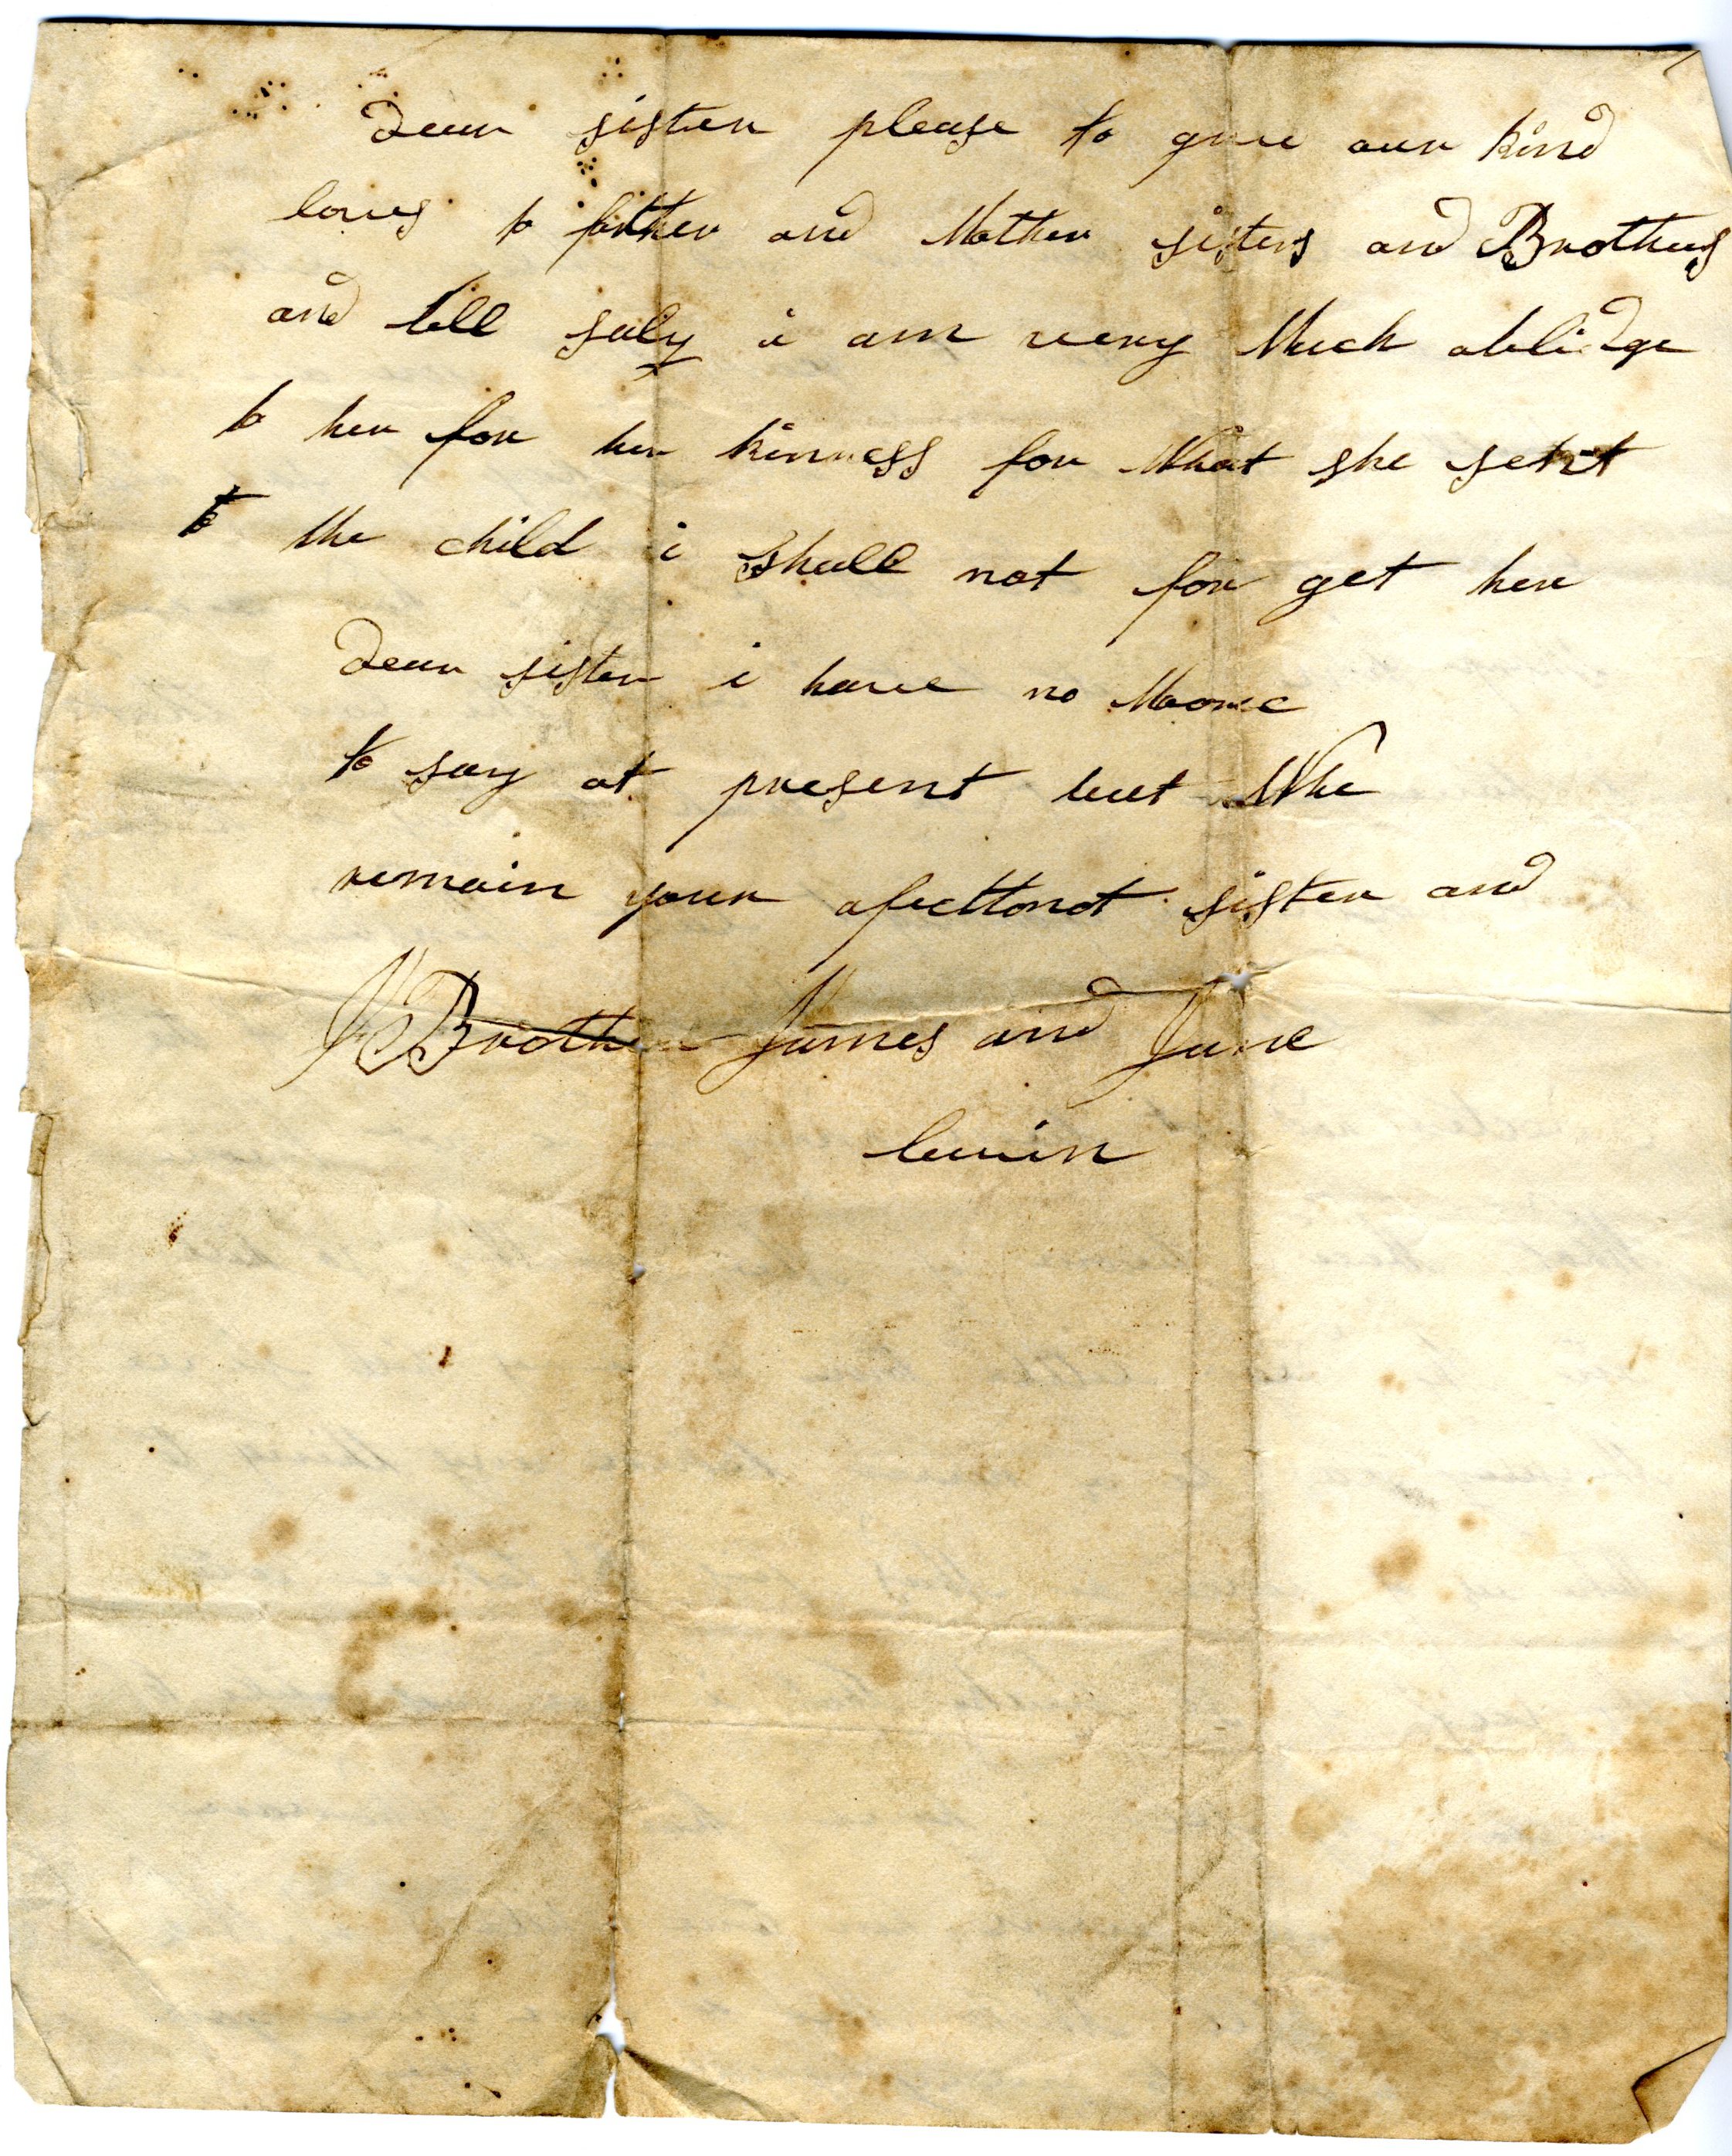 Dear sister please to give our kind
loves to father and Mother sisters and Brothers
and tell saly i am very Much oblidge
to her for her kinness for What she sent
to the child i shall not for get her
Dear sister i have no Moore
to say at present but Whe
remain your afecttonot sister and
Brother James and Jane